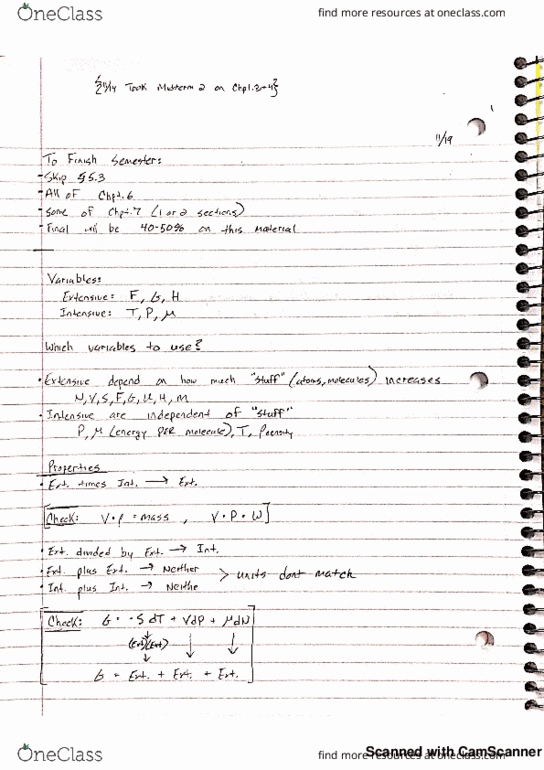 OneClass
find more resources at oneclass.com
{11/14 Took Midterm 2 on Chpt.3+4}
1
11/19
To Finish Semester:
- Skip §5.3
- All of Chpt.6
- Some of Chpt.7 (1 or 2 sections)
- Final will be 40-50% on this material
Variables:
Extensive: F, G, H
Intensive: T, P, μ
Which variables to use?
• Extensive depend on how much "stuff" (atoms, molecules) increases
N, V, S, F, G, U, H, m
• Intensive are independent of "stuff"
P, μ (energy PER molecule), T, ρdensity
Properties
• Ext. times Int. → Ext.
[Check: V·ρ = mass , V·P = W]
• Ext. divided by Ext. → Int.
• Ext. plus Ext. → Neither
• Int. plus Int. → Neithe
> units dont match
Check: G = -S dT + VdP + μdN
(Ext)(Ext)
G = Ext. + Ext. + Ext.
OneClass
find more resources at oneclass.com
Scanned with CamScanner